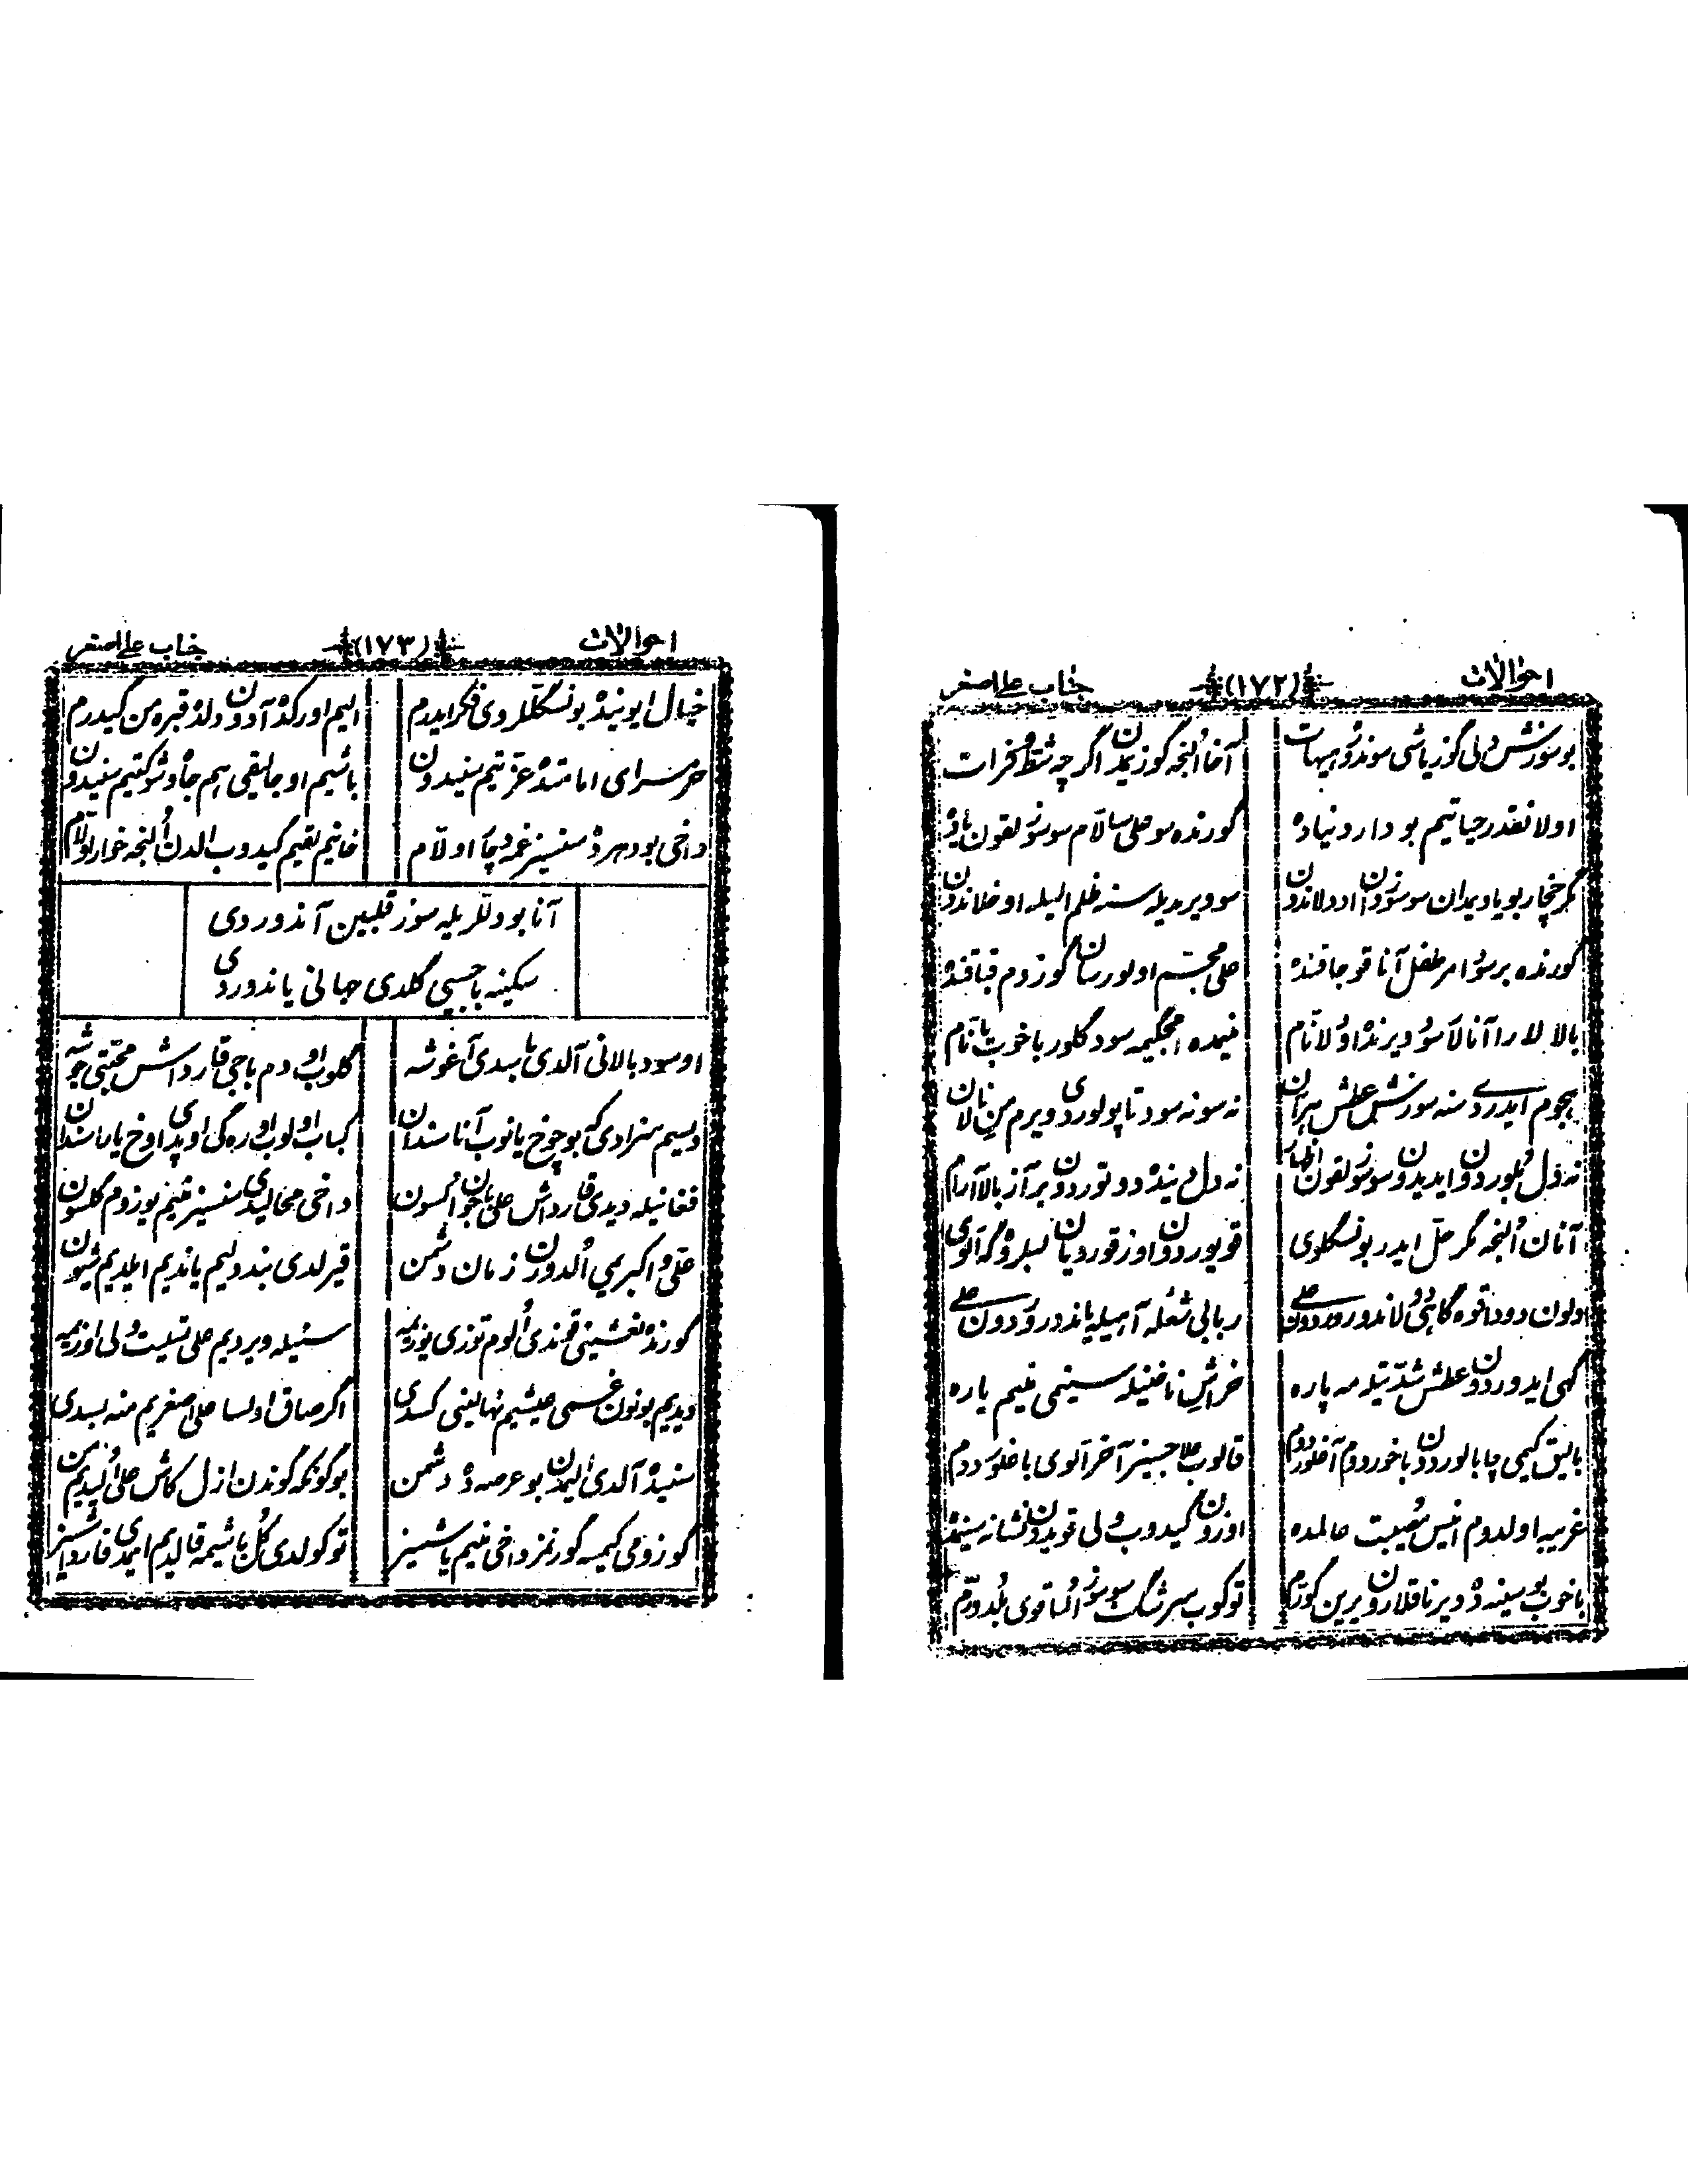 احوالات (۱۷۲) جناب علی اصغر
بو سوزش دلی گوز یاشی سوندور هیهات آخا اُلنجه گوزیمدن اگر چه شط فرات
اولا نقدر حیاتیم بو دار دنیاده گورنده سو علی سالام سوسوز لقون یاده
مگر خجار بویادیمدان سوسوزدان اودلاندون سو ویرمدیله سنه ظلم ایله اوخلاندون
گورنده بر سود امر طفل آنا قوجاقنده علی مجسم اولور سان گوزوم قباقنده
بالالارا آنالار سود یرنده اولانام منیمده امجگیمه سود گلور باخوب یانام
هجوم ایدردی سنه سوزش عطش هر آن نه سو نه سود تاپولوردی ویرم من نالان
نه دل بلوردون ایدیدون سوسوز لقون اظهار نه دل منیده دوتوردون بر آز بالا آرام
آنان اُلنجه مگر حل ایدر بو نسگلوی قویوردون اوز قورویان لبلروگه الوی
اولوردوداقوه گاهی دولاندوروردون علی ربابی شعله آهیله یاندروردون علی
گهی ایدوردون عطش شدتیله مه پاره خراش ناخنیله سینمی منیم یاره
بالیق کیمی چابالوردون باخوردوم آغلوردوم قالوب علاجسیز آخر الوی باغلوردوم
غریبه اولدوم انیس مصیبت عالمده اوزون گیدوب ولی قویدون نشانه سینمده
باخوب بو سینه ده دیرناقلارون یرین گورّم توکوب سرشک سوسوز اُلماقوی بُلدورّم
احوالات (۱۷۳) جناب علی اصغر
خیال ایونیده بو نسگللروی فکر ایدرم الیم اورکده آدون دلده قبره من گیدرم
حرمسرای امامتده عزتیم سنیدون باشیم اوجالیقی هم جاه و شوکتیم سنیدون
داخی بو دهرده سنسیز غمه دچار اولام خانیم لقیم گیدوب الدن اُلنجه خوار اولام
آنا بودللریله سوز قلبین آندوردی
سکینه باجیسی گلدی جانی یاندوردی
او سود بالانی آلدی باسدی آغوشه گلوب او دم باجی قارداش محبتی جوشه
دیسم سزادی که بو چوخ یانوب آناسندان کباب اولوب اوره گی اوپدی اوخ یاراسندان
فغانیله دیدی قارداش علی باجون اُلسون داخی محالیدی سنسیز منیم یوزوم گلسون
علی و اکبریمی اُلدورن زمان دشمن قیرلدی بند دلیم یاندیم ایلدیم شیون
گورنده نعشینی قوندی اُلوم توزی یوزیمه سنیله ویردیم علی تسلیت دلی اوزیمه
دیدیم بونون غمی عیشیم نهالینی کسدی اگر صاق اولسا علی اصغریم منه بسدی
سنیده آلدی الیمدن بو عرصه ده دشمن بو گونکه گوندن ازل کاش علی اُلیدیم من
گوزومی کیمسه گورنمز داخی منیم یاشسیز توکولدی کُل باشیمه قالدیم ایمدی قارداشسیز